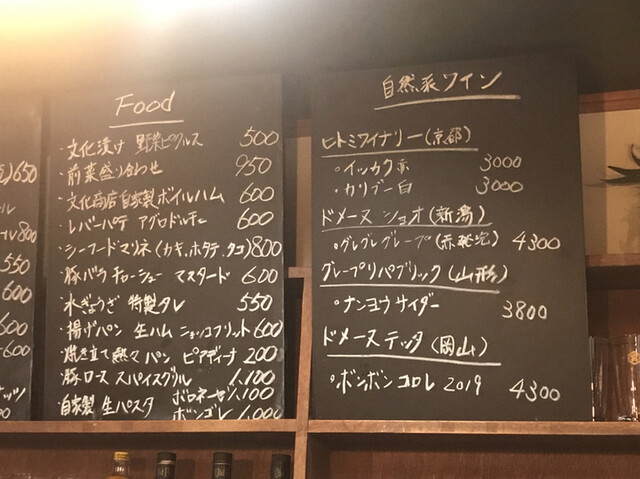 Food
・文化漬け 野菜ピクルス 500
・前菜盛り合わせ 950
・文化商店自家製ボイルハム 600
・レバーパテ アグロドルチェ 600
・シーフードマリネ(カキ、ホタテ、タコ)800
・豚バラチャーシュー マスタード 600
・水ぎょうざ 特製タレ 550
・揚げパン 生ハム ニョッコフリット 600
・焼き立て熱々パン ピアディーナ 200
・豚ロース スパイスグリル 1,100
・自家製 生パスタ ボロネーゼ 1,100
ボンゴレ 1,000
自然派ワイン
ヒトミワイナリー(京都)
・イッカク 赤 3000
・カリブー 白 3000
ドメーヌ ショオ(新潟)
・グレグレグレープ(赤 4300
グレープリパブリック(山形)
・ナンヨウサイダー 3800
ドメーヌ テッタ(岡山)
・ボンボンコロレ 2019 4300
650
800
550
600
600
600
ナッツ